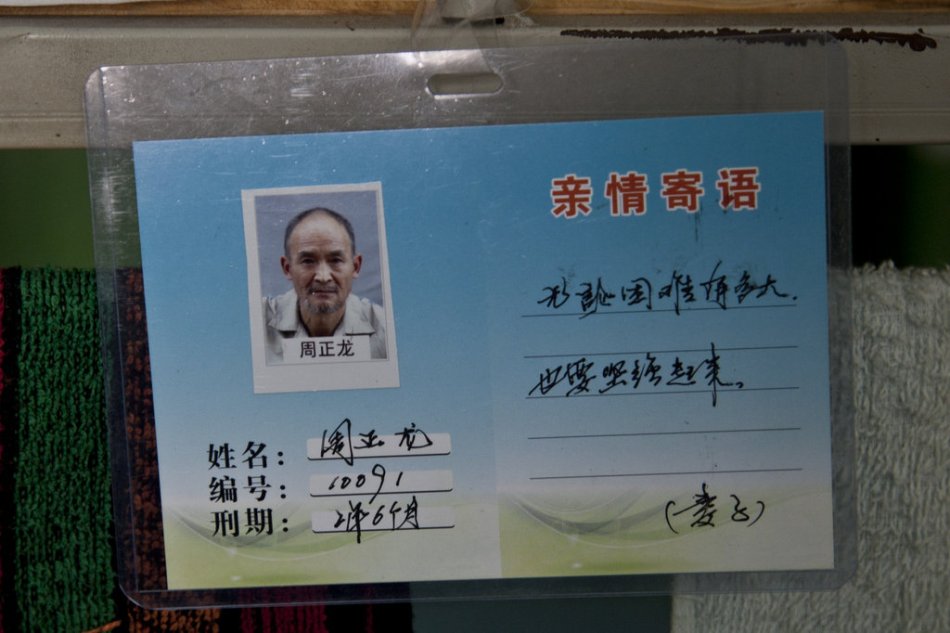 周正龙
姓名：周正龙
编号：10091
刑期：2年6个月
亲情寄语
不论困难有多大，
也要坚强起来。
（妻子）